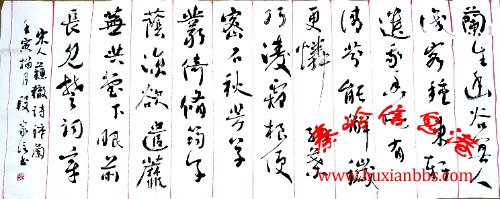 蘭生幽谷無人
識客種東軒
遺我香知有
清芬能解穢
更憐細葉
巧凌霜根便
密石秋芳早
叢倚脩筠午
蔭涼欲遣蘼
蕪共堂下眼前
長見楚詞章
宋人蘇轍詩蘭
壬寅月
秦岭信息港
www.huxianbbs.com